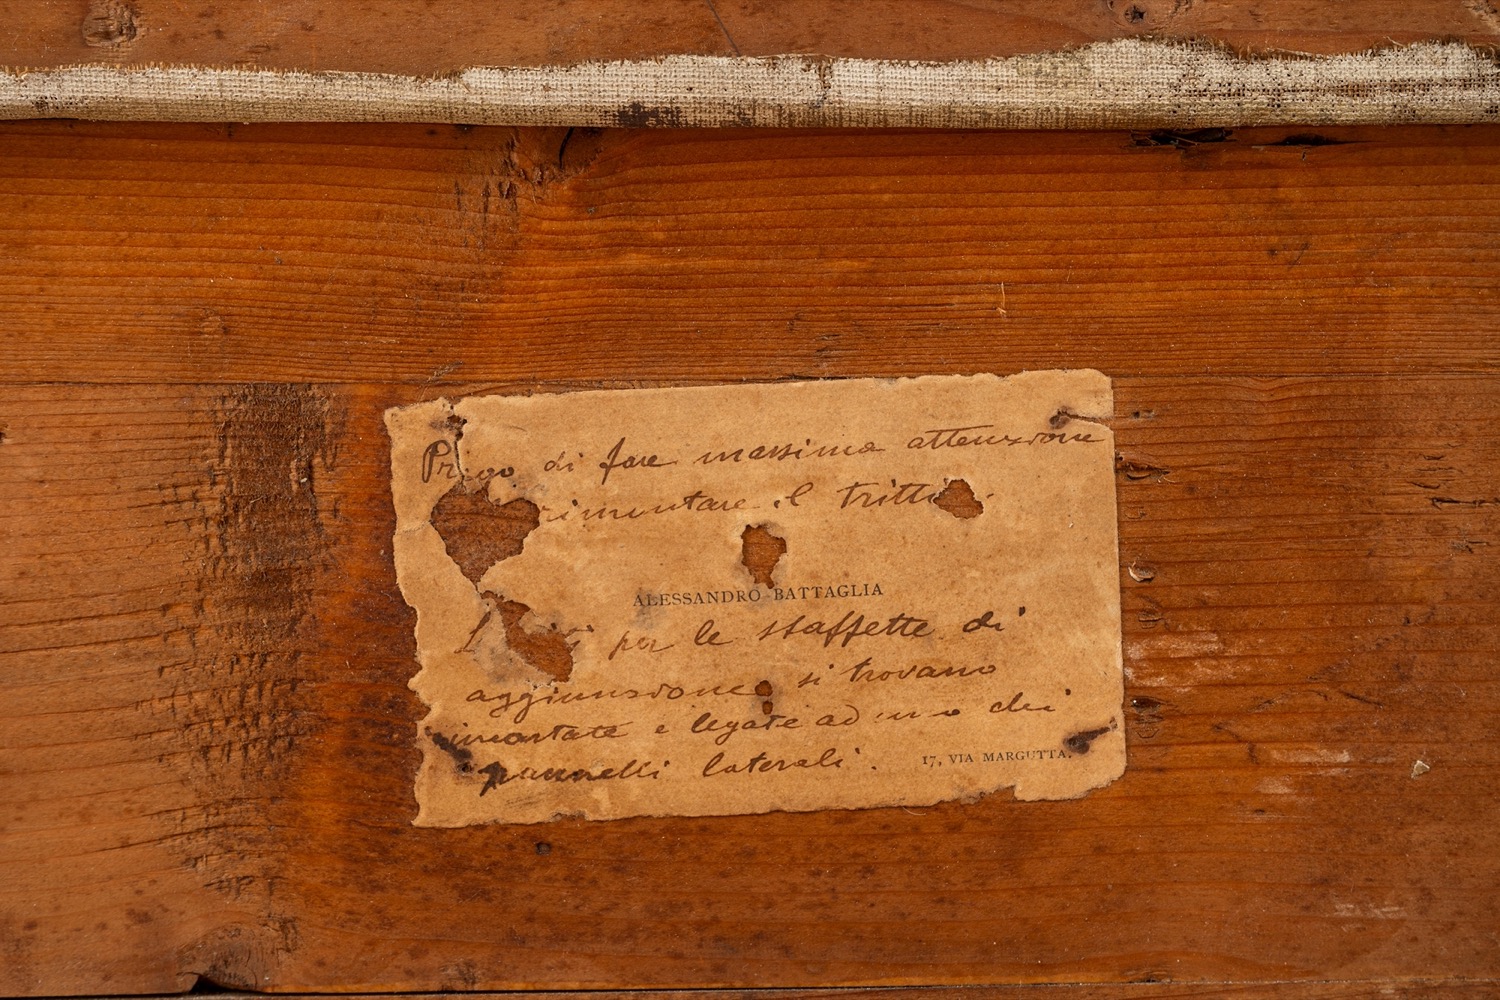 Prego di fare massima attenzione
rimontare il trittico.
ALESSANDRO BATTAGLIA
per le staffette di
aggiunzione si trovano
e legate ad uno dei
pannelli laterali.
17, VIA MARGUTTA.